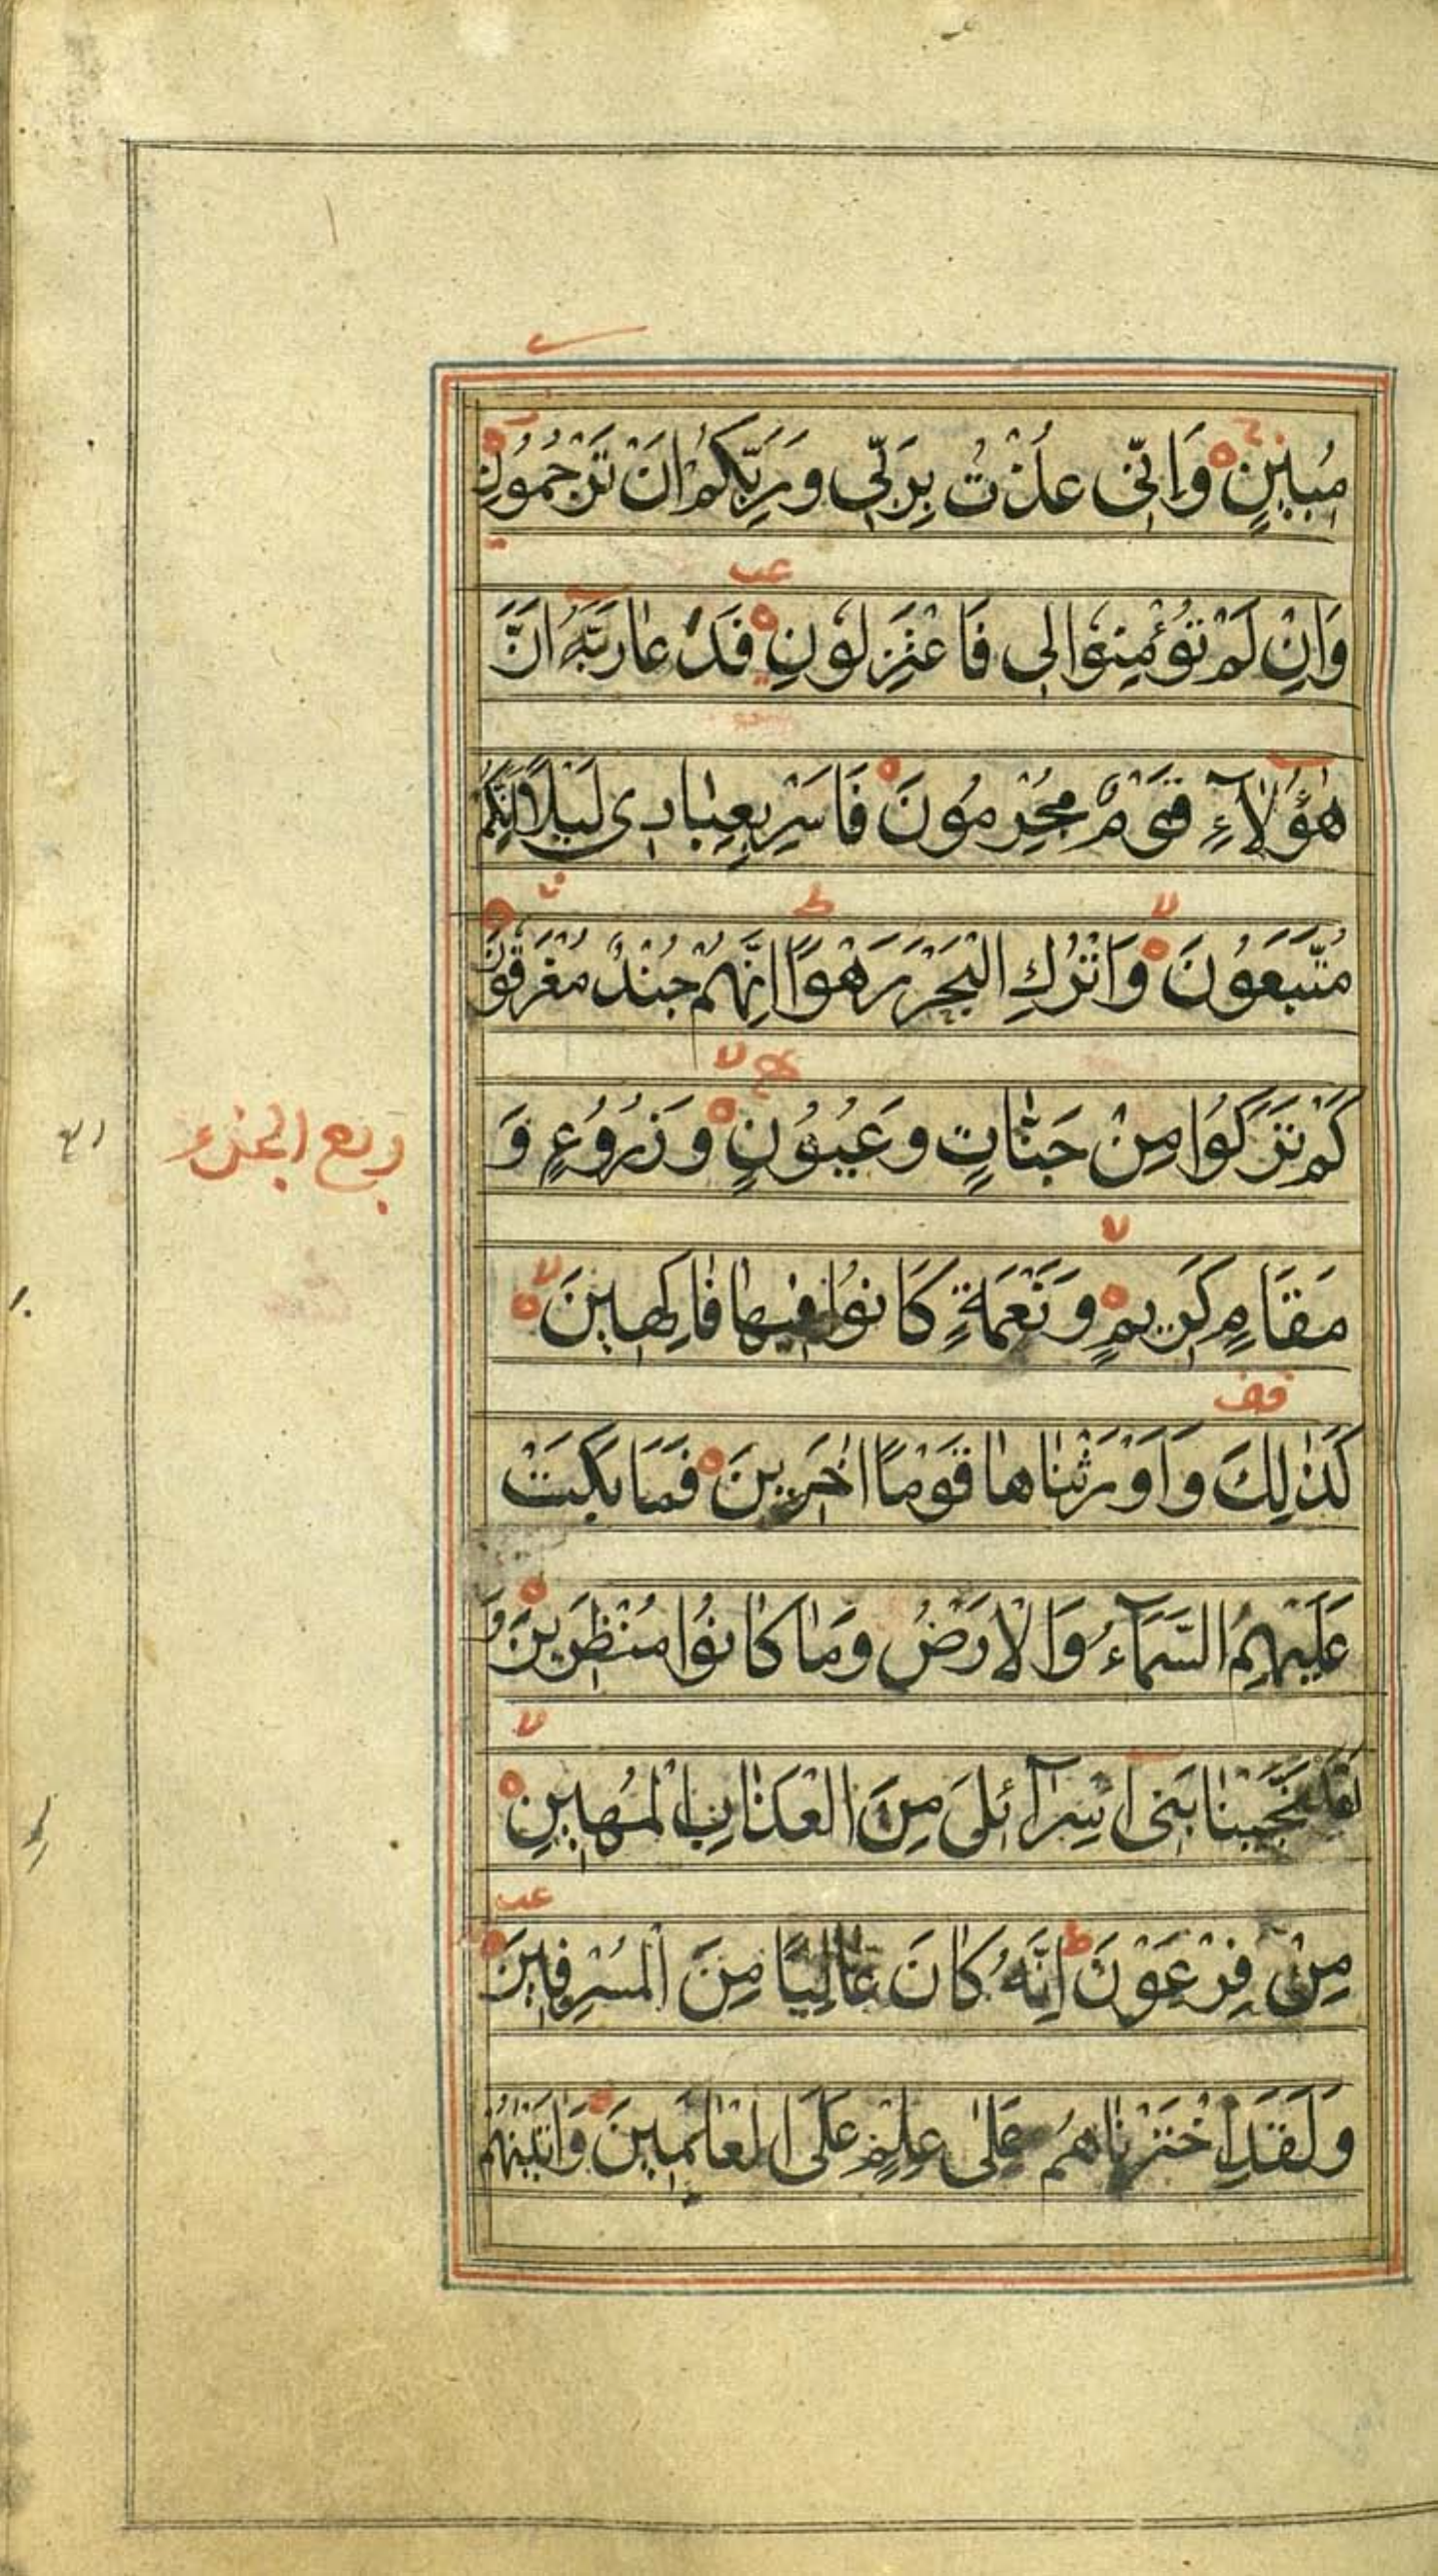 مُبٖينٍ وَاِنّٖى عُذْتُ بِرَبّٖى وَرَبِّكُمْ اَنْ تَرْجُمُونِ
وَاِنْ لَمْ تُؤْمِنُوا لٖى فَاعْتَزِلُونِ فَدَعٰا رَبَّهُ اَنَّ
هٰؤُلٰاۤءِ قَوْمٌ مُجْرِمُونَ فَاَسْرِ بِعِبٰادٖى لَيْلًا اِنَّكُمْ
مُتَّبَعُونَ وَاتْرُكِ الْبَحْرَ رَهْوًا اِنَّهُمْ جُنْدٌ مُغْرَقُونَ
كَمْ تَرَكُوا مِنْ جَنّٰاتٍ وَعُيُونٍ وَزُرُوعٍ وَ
مَقَامٍ كَرٖيمٍ وَنَعْمَةٍ كَانُوا فٖيهٰا فٰاكِهٖينَ
كَذٰلِكَ وَاَوْرَثْنٰاهٰا قَوْمًا اٰخَرٖينَ فَمَا بَكَتْ
عَلَيْهِمُ السَّمَاۤءُ وَالْاَرْضُ وَمٰا كٰانُوا مُنْظَرٖينَ وَ
لَقَدْ نَجَّيْنٰا بَنٖى اِسْرٰاۤئٖلَ مِنَ الْعَذٰابِ الْمُهٖينِ
مِنْ فِرْعَوْنَ اِنَّهُ كٰانَ عٰالِيًا مِنَ الْمُسْرِفٖينَ
وَلَقَدِ اخْتَرْنٰاهُمْ عَلٰى عِلْمٍ عَلَى الْعٰالَمٖينَ وَاٰتَيْنٰهُمْ
ربع الجزء